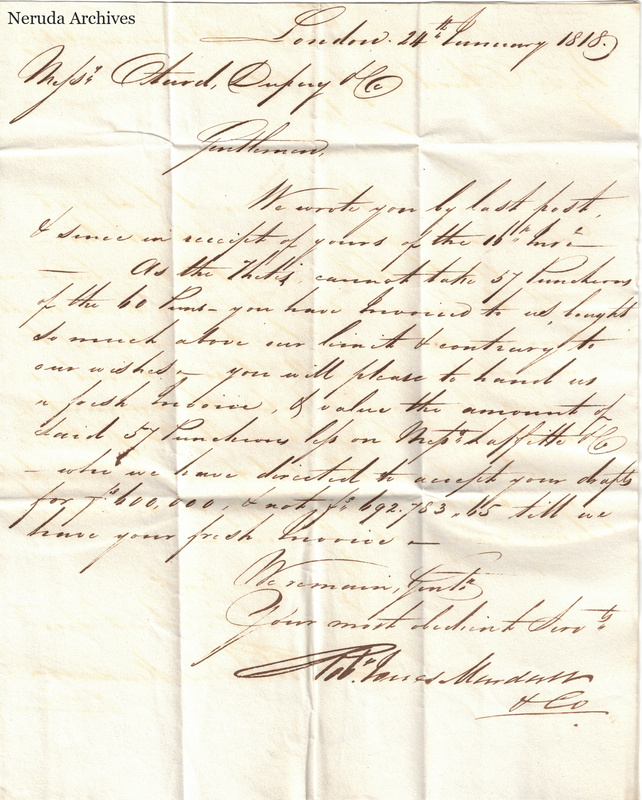 Neruda Archives
London. 24th January 1818.
Messrs Otard, Dupuy & Co
Gentlemen,
We wrote you by last post,
& since in receipt of yours of the 16th
— As the Thetis, cannot take 57 Puncheons
of the 60 Puns— you have Invoiced to us, bought
so much above our limit & contrary to
our wishes — you will please to hand us
a fresh Invoice, & value the amount of
said 57 Puncheons less on Messrs Laffitte & Co
— who we have directed to accept your drafts
for fs. 600,000, & not fs. 692.783,65 till we
have your fresh Invoice —
We remain, Gentn
Your most obedient Servts
Robt. James
& Co